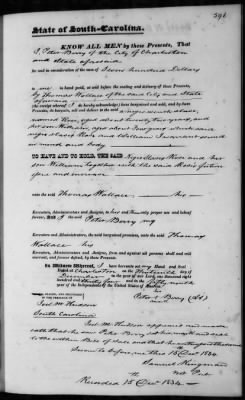 State of South-Carolina.
KNOW ALL MEN by these Presents, That
I, Peter Berry of the City of Charleston
and State aforesaid
for and in consideration of the sum of Seven hundred Dollars
to me in hand paid, at and before the sealing and delivery of these Presents,
by Thomas Wallace of the said City and State
aforesaid
the receipt whereof I do hereby acknowledge, have bargained and sold, and by these
Presents, do bargain, sell and deliver to the said
named Rose, aged about twenty two years, and
her son William, aged about four years which said
negro slaves Rose and William I warrant sound
in mind and body
TO HAVE AND TO HOLD, THE SAID negro Slaves Rose and her
son William together with the said Rose's future
issue and increase
unto the said Thomas Wallace his
Executors, Administrators and Assigns, to and their only proper use and behoof
forever. And I the said Peter Berry my
Executors and Administrators, the said bargained premises, unto the said Thomas
Wallace his
Executors, Administrators and Assigns, from and against all persons shall and will
warrant, and forever defend, by these Presents.
In Witness Whereof, I have hereunto set my Hand and Seal
Dated at Charleston on the thirteenth day of
December in the year of our Lord, one thousand eight
hundred and thirty four and in the fifty ninth
year of the Independence of the United States of America.
SEALED, AND DELIVERED
IN THE PRESENCE OF
Peter Berry (LS)
Joel M. Hudson
South Carolina
Joel M. Hudson appeared and made
oath that he saw Peter Berry
the within Bill of Sale and that he
Sworn to before me this 15 Decr 1834.
Samuel
Not Pub
Recorded 15 Decr 1834